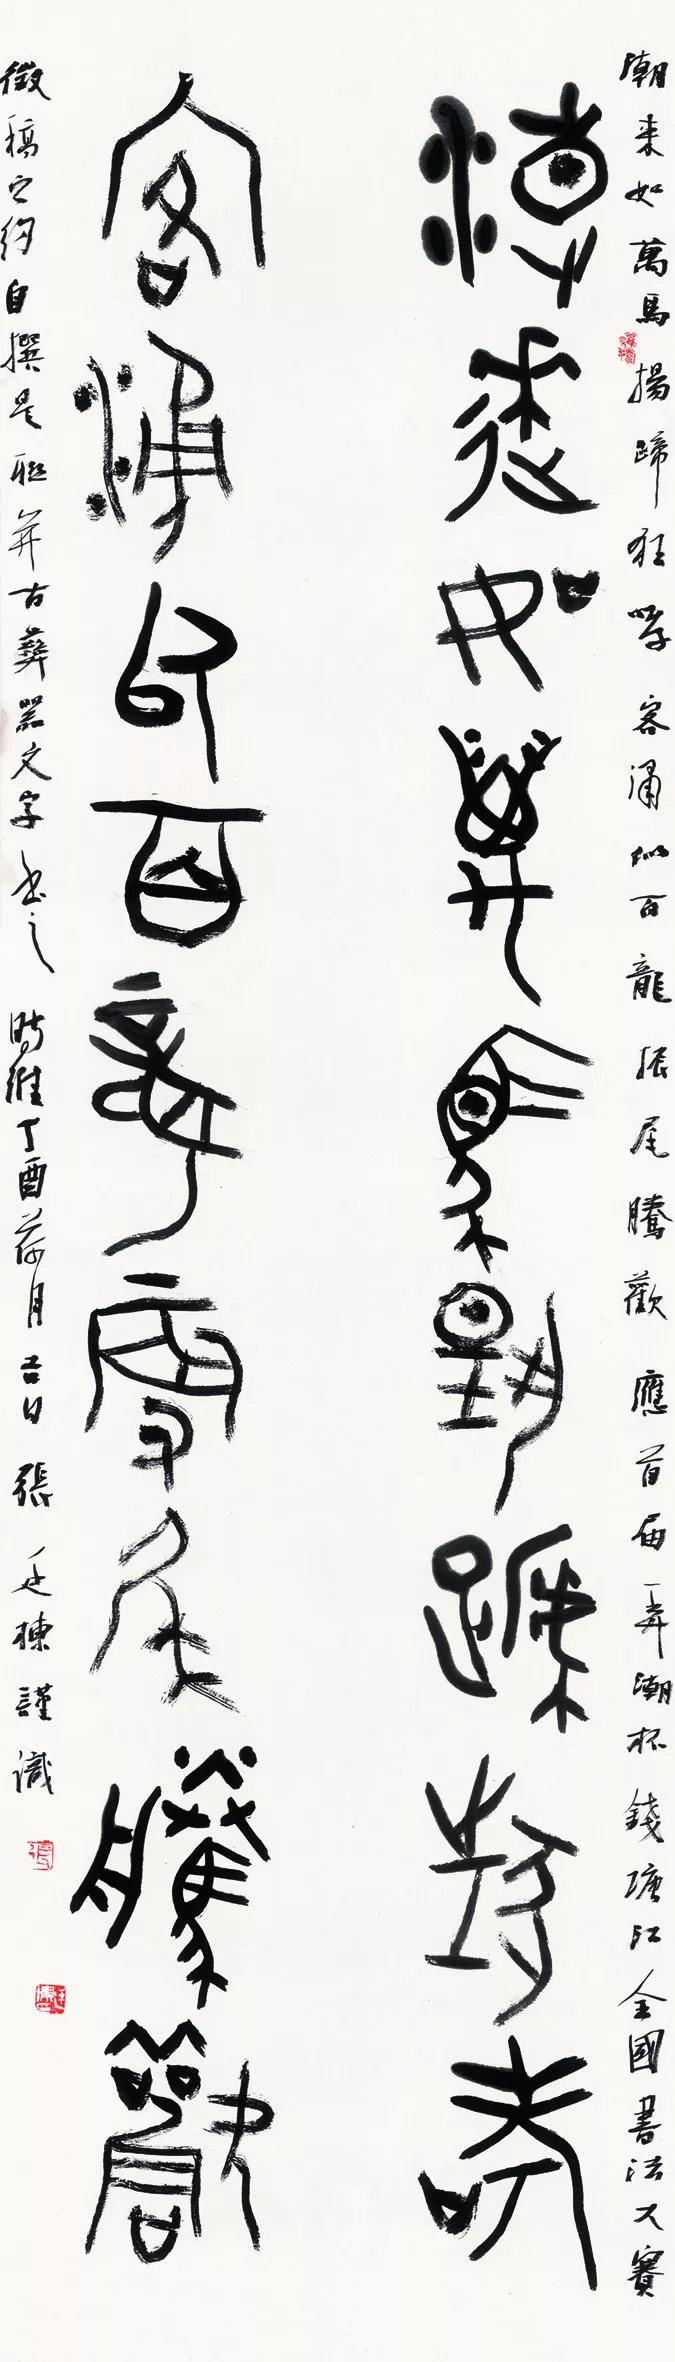 潮来如萬馬揚蹄狂哮客涌似百龍振尾騰歡應首届弄潮杯錢塘江全國書法大賽
潮来如萬馬揚蹄狂哮
客涌似百龍振尾騰歡
徵稿之約自撰是联并古彝器文字書之時維丁酉荷月吉日張廷棟謹識